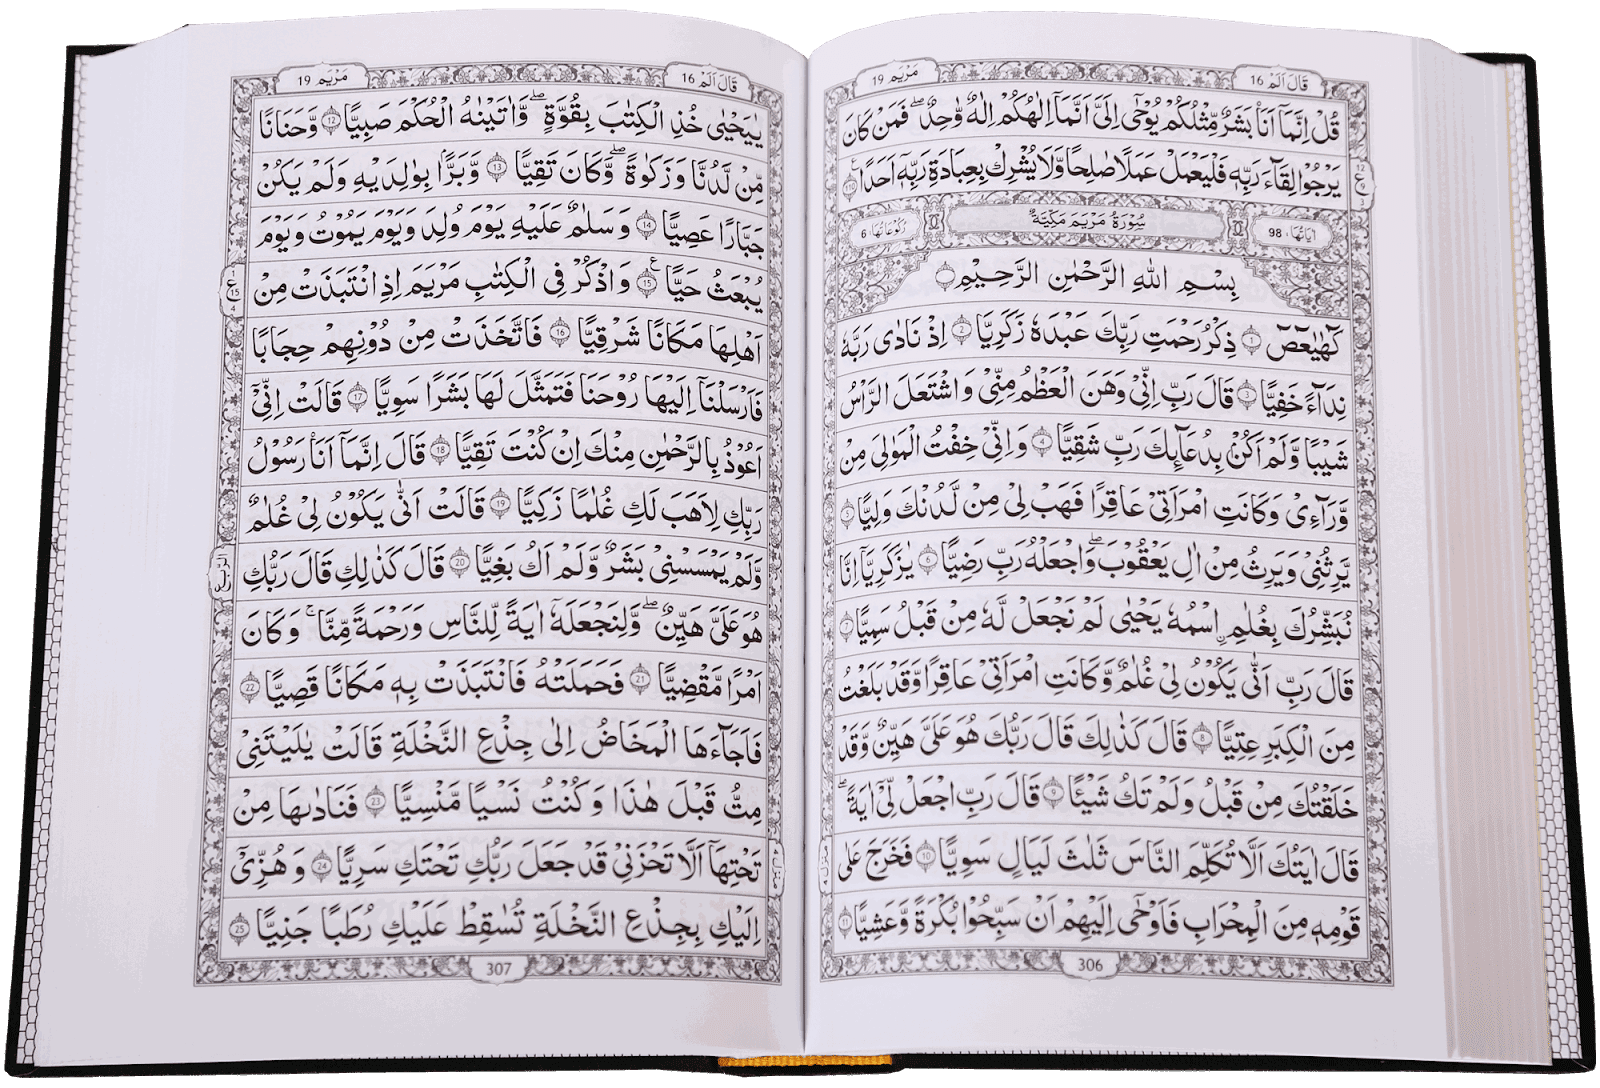 مَرْيَم 19
قَالَ اَلَمْ 16
قُلْ اِنَّمَاۤ اَنَا بَشَرٌ مِّثْلُكُمْ يُوْحٰۤى اِلَىَّ اَنَّمَاۤ اِلٰهُكُمْ اِلٰهٌ وَّاحِدٌ ۖ فَمَنْ كَانَ
يَرْجُوْا لِقَآءَ رَبِّهٖ فَلْيَعْمَلْ عَمَلًا صٰلِحًا وَّلَا يُشْرِكْ بِعِبَادَةِ رَبِّهٖۤ اَحَدًا ۝110
اٰيَاتُهَا: 98
سُوْرَةُ مَرْيَمَ مَكِّيَّةٌ
رُكُوْعَاتُهَا: 6
بِسْمِ اللّٰهِ الرَّحْمٰنِ الرَّحِيْمِ
كٓهٰيٰعٓصٓ ۝1 ذِكْرُ رَحْمَتِ رَبِّكَ عَبْدَهٗ زَكَرِيَّا ۝2 اِذْ نَادٰى رَبَّهٗ
نِدَآءً خَفِيًّا ۝3 قَالَ رَبِّ اِنِّىْ وَهَنَ الْعَظْمُ مِنِّىْ وَاشْتَعَلَ الرَّاْسُ
شَيْبًا وَّلَمْ اَكُنْۢ بِدُعَآئِكَ رَبِّ شَقِيًّا ۝4 وَاِنِّىْ خِفْتُ الْمَوَالِىَ مِنْ
وَّرَآءِىْ وَكَانَتِ امْرَاَتِىْ عَاقِرًا فَهَبْ لِىْ مِنْ لَّدُنْكَ وَلِيًّا ۝5
يَّرِثُنِىْ وَيَرِثُ مِنْ اٰلِ يَعْقُوْبَ ۖ وَاجْعَلْهُ رَبِّ رَضِيًّا ۝6 يٰزَكَرِيَّاۤ اِنَّا
نُبَشِّرُكَ بِغُلٰمِ اۨسْمُهٗ يَحْيٰى لَمْ نَجْعَلْ لَّهٗ مِنْ قَبْلُ سَمِيًّا ۝7
قَالَ رَبِّ اَنّٰى يَكُوْنُ لِىْ غُلٰمٌ وَّكَانَتِ امْرَاَتِىْ عَاقِرًا وَّقَدْ بَلَغْتُ
مِنَ الْكِبَرِ عِتِيًّا ۝8 قَالَ كَذٰلِكَ قَالَ رَبُّكَ هُوَ عَلَىَّ هَيِّنٌ وَّقَدْ
خَلَقْتُكَ مِنْ قَبْلُ وَلَمْ تَكُ شَيْئًا ۝9 قَالَ رَبِّ اجْعَلْ لِّىْۤ اٰيَةً ۖ
قَالَ اٰيَتُكَ اَلَّا تُكَلِّمَ النَّاسَ ثَلٰثَ لَيَالٍ سَوِيًّا ۝10 فَخَرَجَ عَلٰى
قَوْمِهٖ مِنَ الْمِحْرَابِ فَاَوْحٰۤى اِلَيْهِمْ اَنْ سَبِّحُوْا بُكْرَةً وَّعَشِيًّا ۝11
306
مَرْيَم 19
قَالَ اَلَمْ 16
يٰيَحْيٰى خُذِ الْكِتٰبَ بِقُوَّةٍ ۖ وَّاٰتَيْنٰهُ الْحُكْمَ صَبِيًّا ۝12 وَّحَنَانًا
مِّنْ لَّدُنَّا وَزَكٰوةً ۖ وَّكَانَ تَقِيًّا ۝13 وَّبَرًّۢا بِوَالِدَيْهِ وَلَمْ يَكُنْ
جَبَّارًا عَصِيًّا ۝14 وَسَلٰمٌ عَلَيْهِ يَوْمَ وُلِدَ وَيَوْمَ يَمُوْتُ وَيَوْمَ
يُبْعَثُ حَيًّا ۝15 وَاذْكُرْ فِى الْكِتٰبِ مَرْيَمَ اِذِ انْتَبَذَتْ مِنْ
اَهْلِهَا مَكَانًا شَرْقِيًّا ۝16 فَاتَّخَذَتْ مِنْ دُوْنِهِمْ حِجَابًا
فَاَرْسَلْنَاۤ اِلَيْهَا رُوْحَنَا فَتَمَثَّلَ لَهَا بَشَرًا سَوِيًّا ۝17 قَالَتْ اِنِّىْۤ
اَعُوْذُ بِالرَّحْمٰنِ مِنْكَ اِنْ كُنْتَ تَقِيًّا ۝18 قَالَ اِنَّمَاۤ اَنَا رَسُوْلُ
رَبِّكِ لِاَهَبَ لَكِ غُلٰمًا زَكِيًّا ۝19 قَالَتْ اَنّٰى يَكُوْنُ لِىْ غُلٰمٌ
وَّلَمْ يَمْسَسْنِىْ بَشَرٌ وَّلَمْ اَكُ بَغِيًّا ۝20 قَالَ كَذٰلِكِ قَالَ رَبُّكِ
هُوَ عَلَىَّ هَيِّنٌ ۖ وَلِنَجْعَلَهٗۤ اٰيَةً لِّلنَّاسِ وَرَحْمَةً مِّنَّا ۚ وَكَانَ
اَمْرًا مَّقْضِيًّا ۝21 فَحَمَلَتْهُ فَانْتَبَذَتْ بِهٖ مَكَانًا قَصِيًّا ۝22
فَاَجَآءَهَا الْمَخَاضُ اِلٰى جِذْعِ النَّخْلَةِ قَالَتْ يٰلَيْتَنِىْ
مِتُّ قَبْلَ هٰذَا وَكُنْتُ نَسْيًا مَّنْسِيًّا ۝23 فَنَادٰىهَا مِنْ
تَحْتِهَاۤ اَلَّا تَحْزَنِىْ قَدْ جَعَلَ رَبُّكِ تَحْتَكِ سَرِيًّا ۝24 وَهُزِّىْۤ
اِلَيْكِ بِجِذْعِ النَّخْلَةِ تُسٰقِطْ عَلَيْكِ رُطَبًا جَنِيًّا ۝25
307